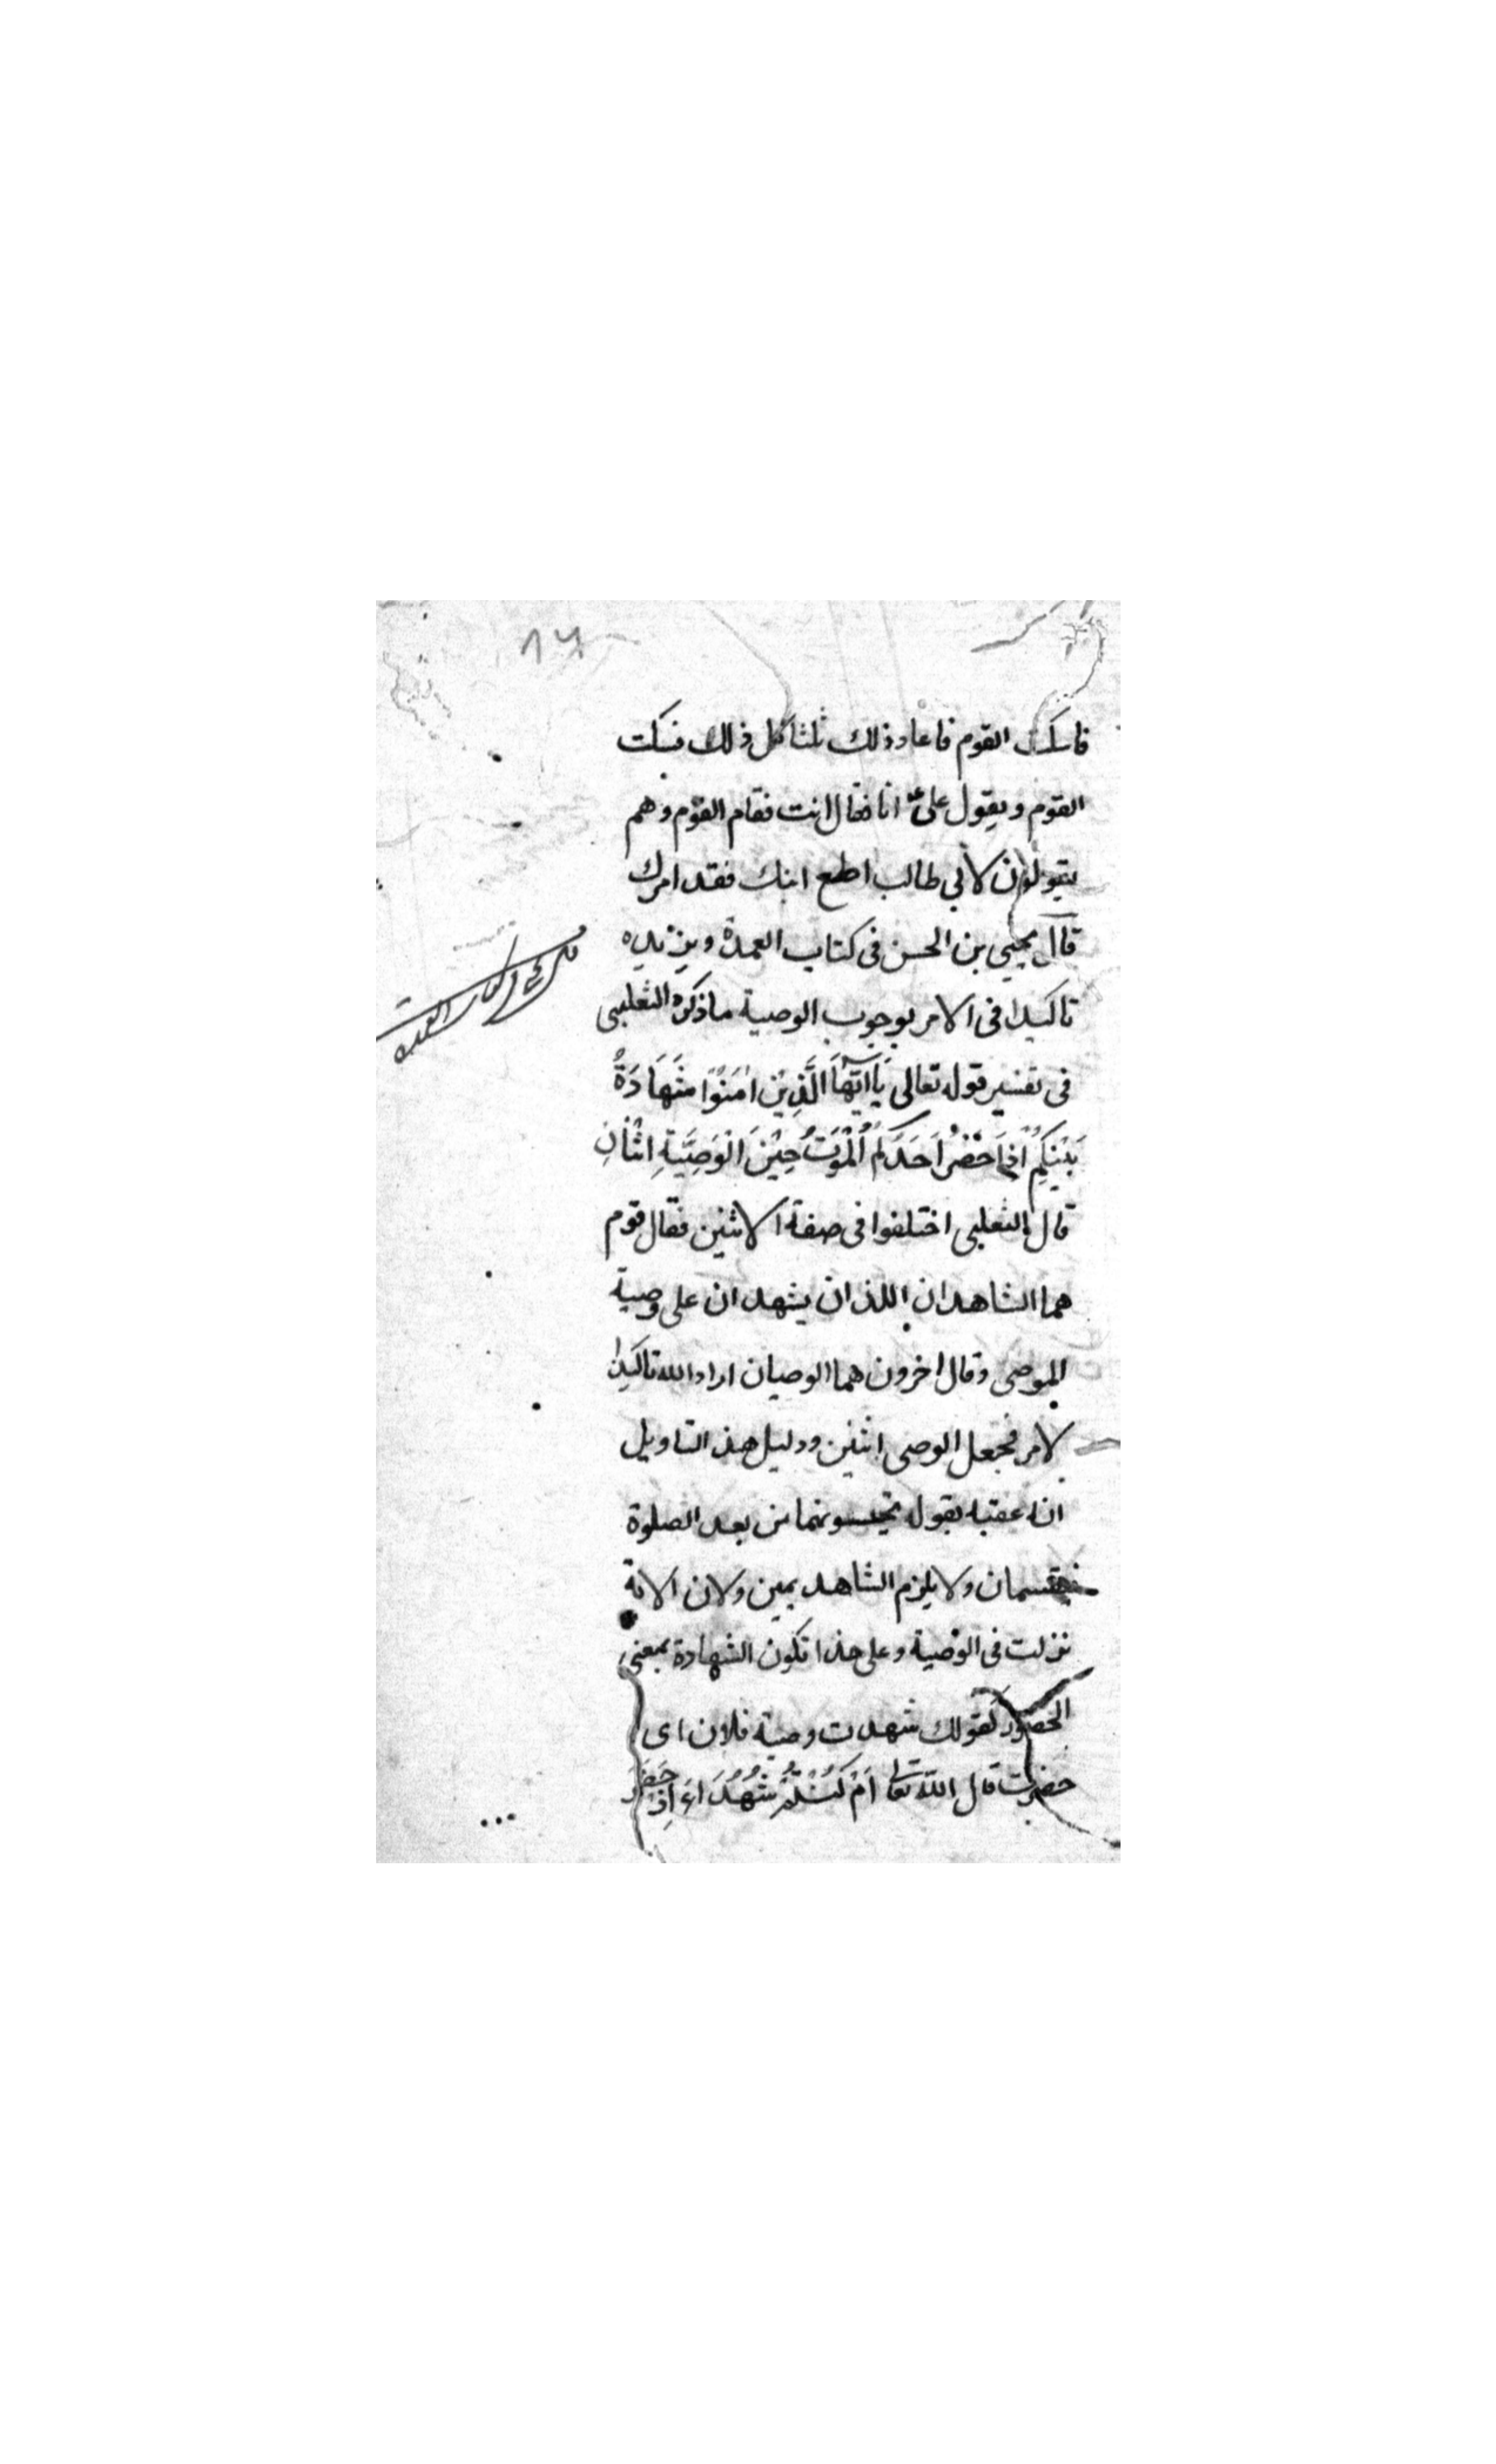 ١٧
فاسكت القوم فاعاد ذلك ثلثا كل ذلك فسكت
القوم ويقول علىّ انا فقال انت فقام القوم وهم
يقولون لابي طالب اطع ابنك فقد امرك
قال يحيى بن الحسن فى كتاب العمدة ويزيده
تاكيدا فى الامر بوجوب الوصية ما ذكره الثعلبى
فى تفسير قوله تعالى يَا اَيُّهَا الَّذِيْنَ اٰمَنُوْا شَهَادَةُ
بَيْنِكُمْ اِذَا حَضَرَ اَحَدَكُمُ الْمَوْتُ حِيْنَ الْوَصِيَّةِ اثْنَانِ
قال الثعلبى اختلفوا فى صفة الاثنين فقال قوم
هما الشاهدان اللذان يشهدان على وصية
الموصى وقال اخرون هما الوصيان اراد الله تاكيدا
لامر فجعل الوصى اثنين ودليل هذ التاويل
انه عقبه بقوله تحبسونهما من بعد الصلوة
فيقسمان ولا يلزم الشاهد يمين ولان الاية
نزلت فى الوصية وعلى هذا تكون الشهادة بمعنى
الحضور كقولك شهدت وصية فلان اى
حضرت قال الله تعالى اَمْ كُنْتُمْ شُهَدَاءَ اِذْ حَضَرَ